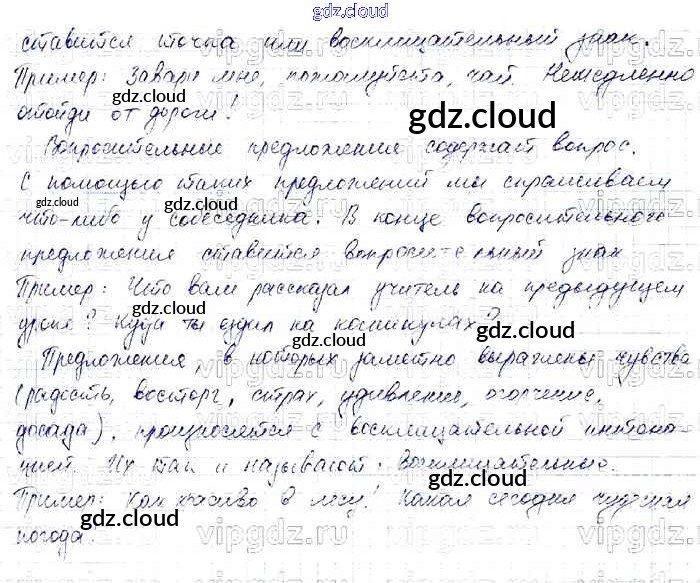 gdz.cloud
ставится точка или восклицательный знак.
Пример: Завари мне, пожалуйста, чай. Немедленно
отойди от дороги!
Вопросительные предложения содержат вопрос.
С помощью таких предложений мы спрашиваем
что-либо у собеседника. В конце вопросительного
предложения ставится вопросительный знак
Пример: Что вам рассказал учитель на предыдущем
уроке? Куда ты ездил на каникулах?
Предложения, в которых заметно выражены чувства
(радость, восторг, страх, удивление, огорчение,
досада), произносятся с восклицательной интона-
цией. Их так и называют: Восклицательные.
Пример: Как красиво в лесу! Какая сегодня чудесная
погода.
gdz.cloud
gdz.cloud
gdz.cloud
gdz.cloud
gdz.cloud
gdz.cloud
gdz.cloud
gdz.cloud
gdz.cloud
gdz.cloud